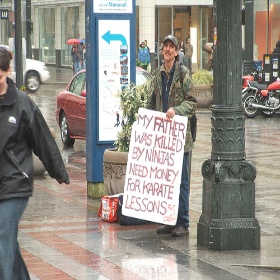 MY FATHER
WAS KILLED
BY NINJAS
NEED MONEY
FOR KARATE
LESSONS